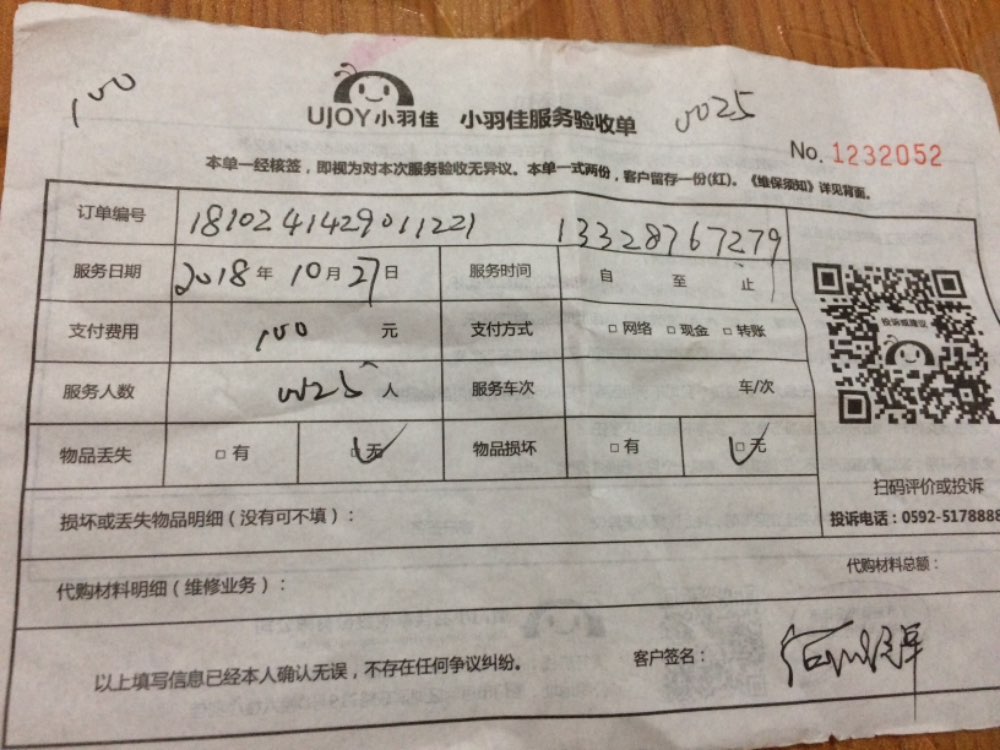 100
UJOY小羽佳 小羽佳服务验收单
0025
No. 1232052
本单一经核签，即视为对本次服务验收无异议。本单一式两份，客户留存一份(红)。《维保须知》详见背面。
订单编号 1810241429011221 13328767279
服务日期 2018年10月27日 服务时间 自 至 止
支付费用 100 元 支付方式 □网络 □现金 □转账
服务人数 0025 人 服务车次 车/次
物品丢失 □有 □无 物品损坏 □有 □无
投诉或建议
扫码评价或投诉
投诉电话：0592-5178888
损坏或丢失物品明细（没有可不填）：
代购材料明细（维修业务）： 代购材料总额：
以上填写信息已经本人确认无误，不存在任何争议纠纷。 客户签名：